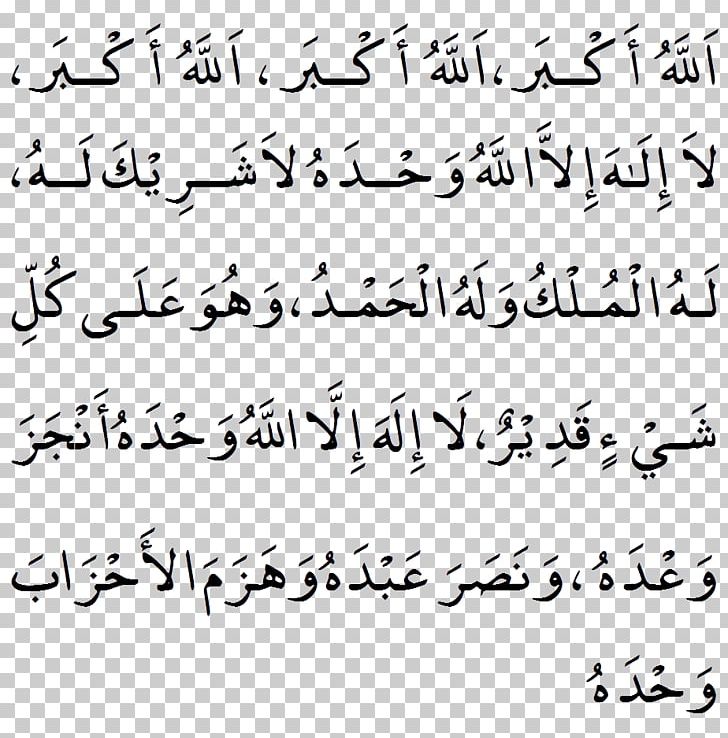 اَللَّهُ أَكْبَر، اَللَّهُ أَكْبَر، اَللَّهُ أَكْبَر،
لاَ إِلَهَ إِلاَّ اللَّهُ وَحْدَهُ لاَ شَرِيْكَ لَهُ،
لَهُ الْمُلْكُ وَلَهُ الْحَمْدُ، وَهُوَ عَلَى كُلِّ
شَيْءٍ قَدِيْرٌ، لَا إِلَهَ إِلَّا اللَّهُ وَحْدَهُ أَنْجَزَ
وَعْدَهُ، وَنَصَرَ عَبْدَهُ وَهَزَمَ الأَحْزَابَ
وَحْدَهُ